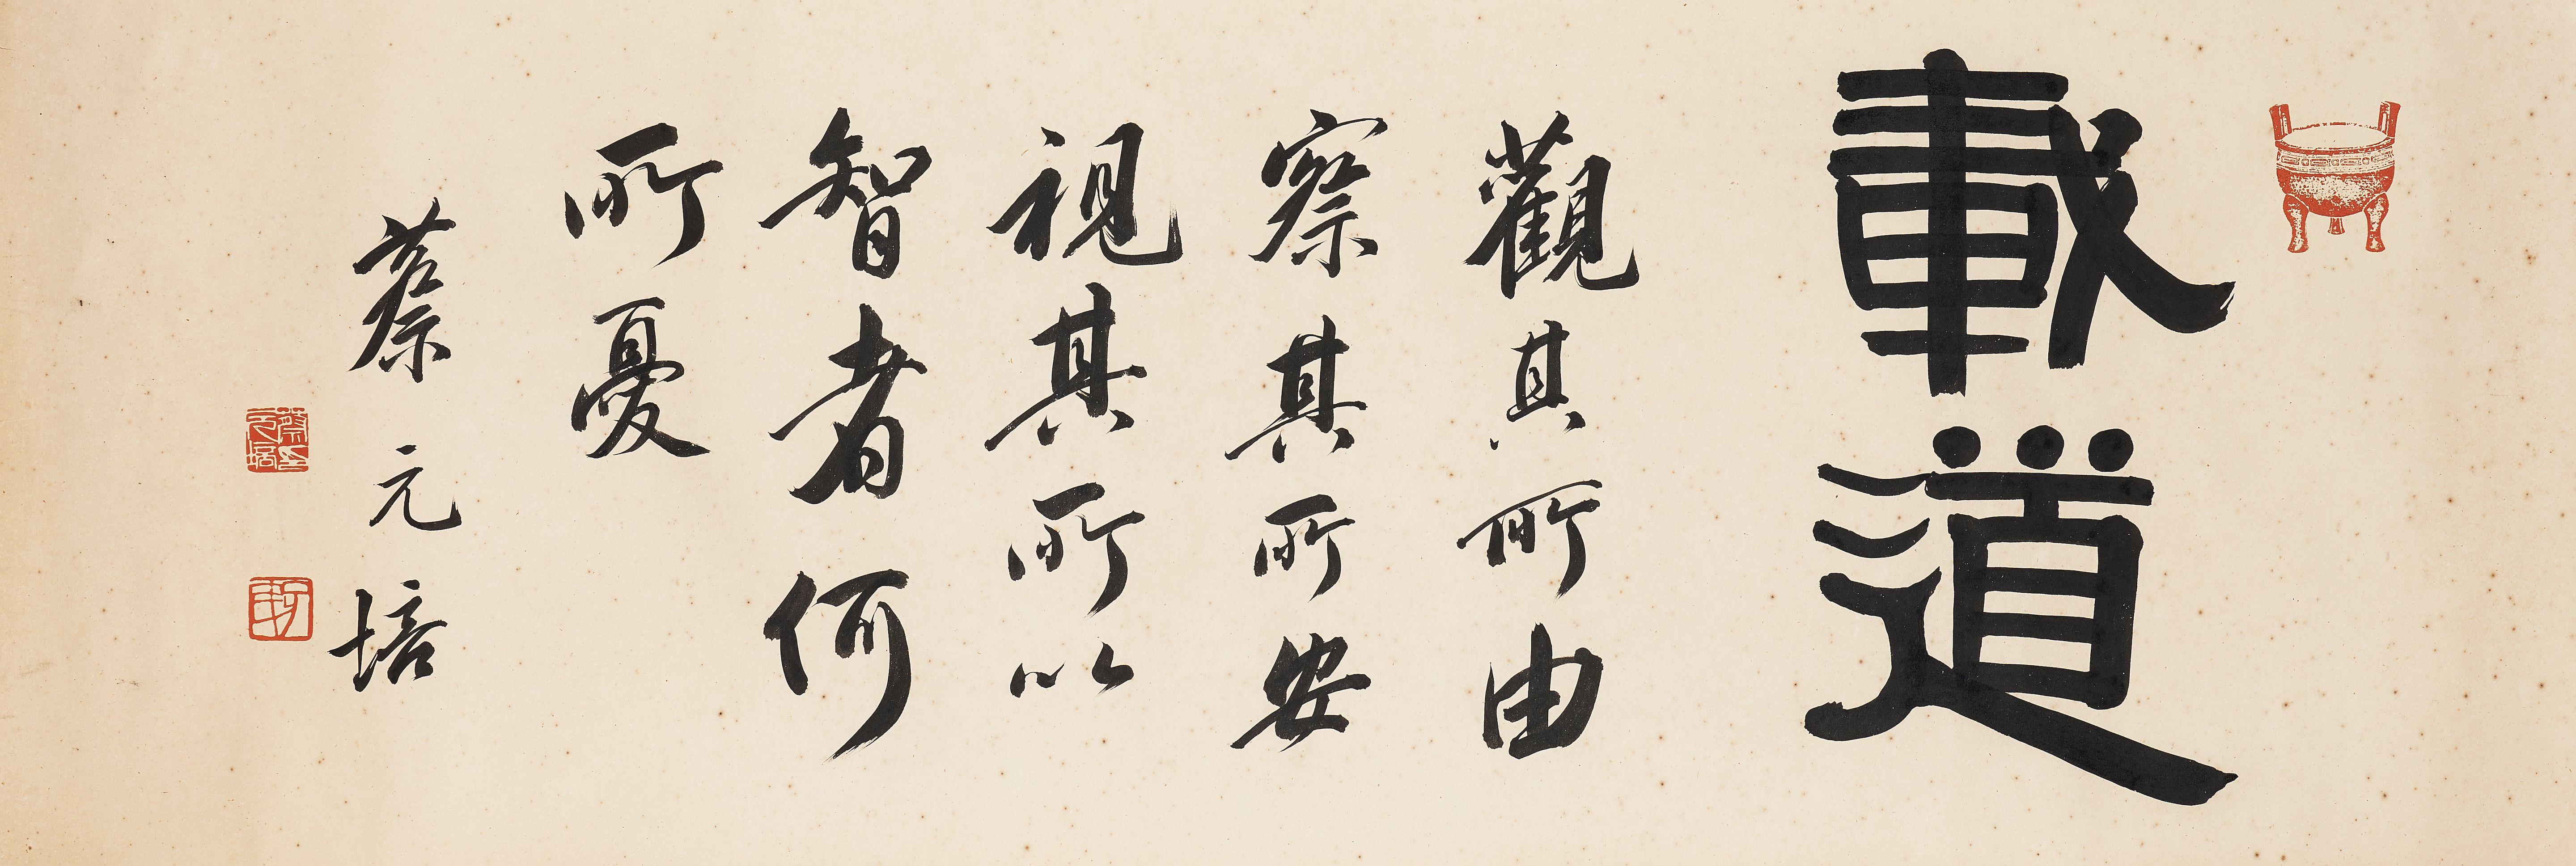 載道
觀其所由
察其所安
視其所以
智者何
所憂
蔡元培
蔡元培印